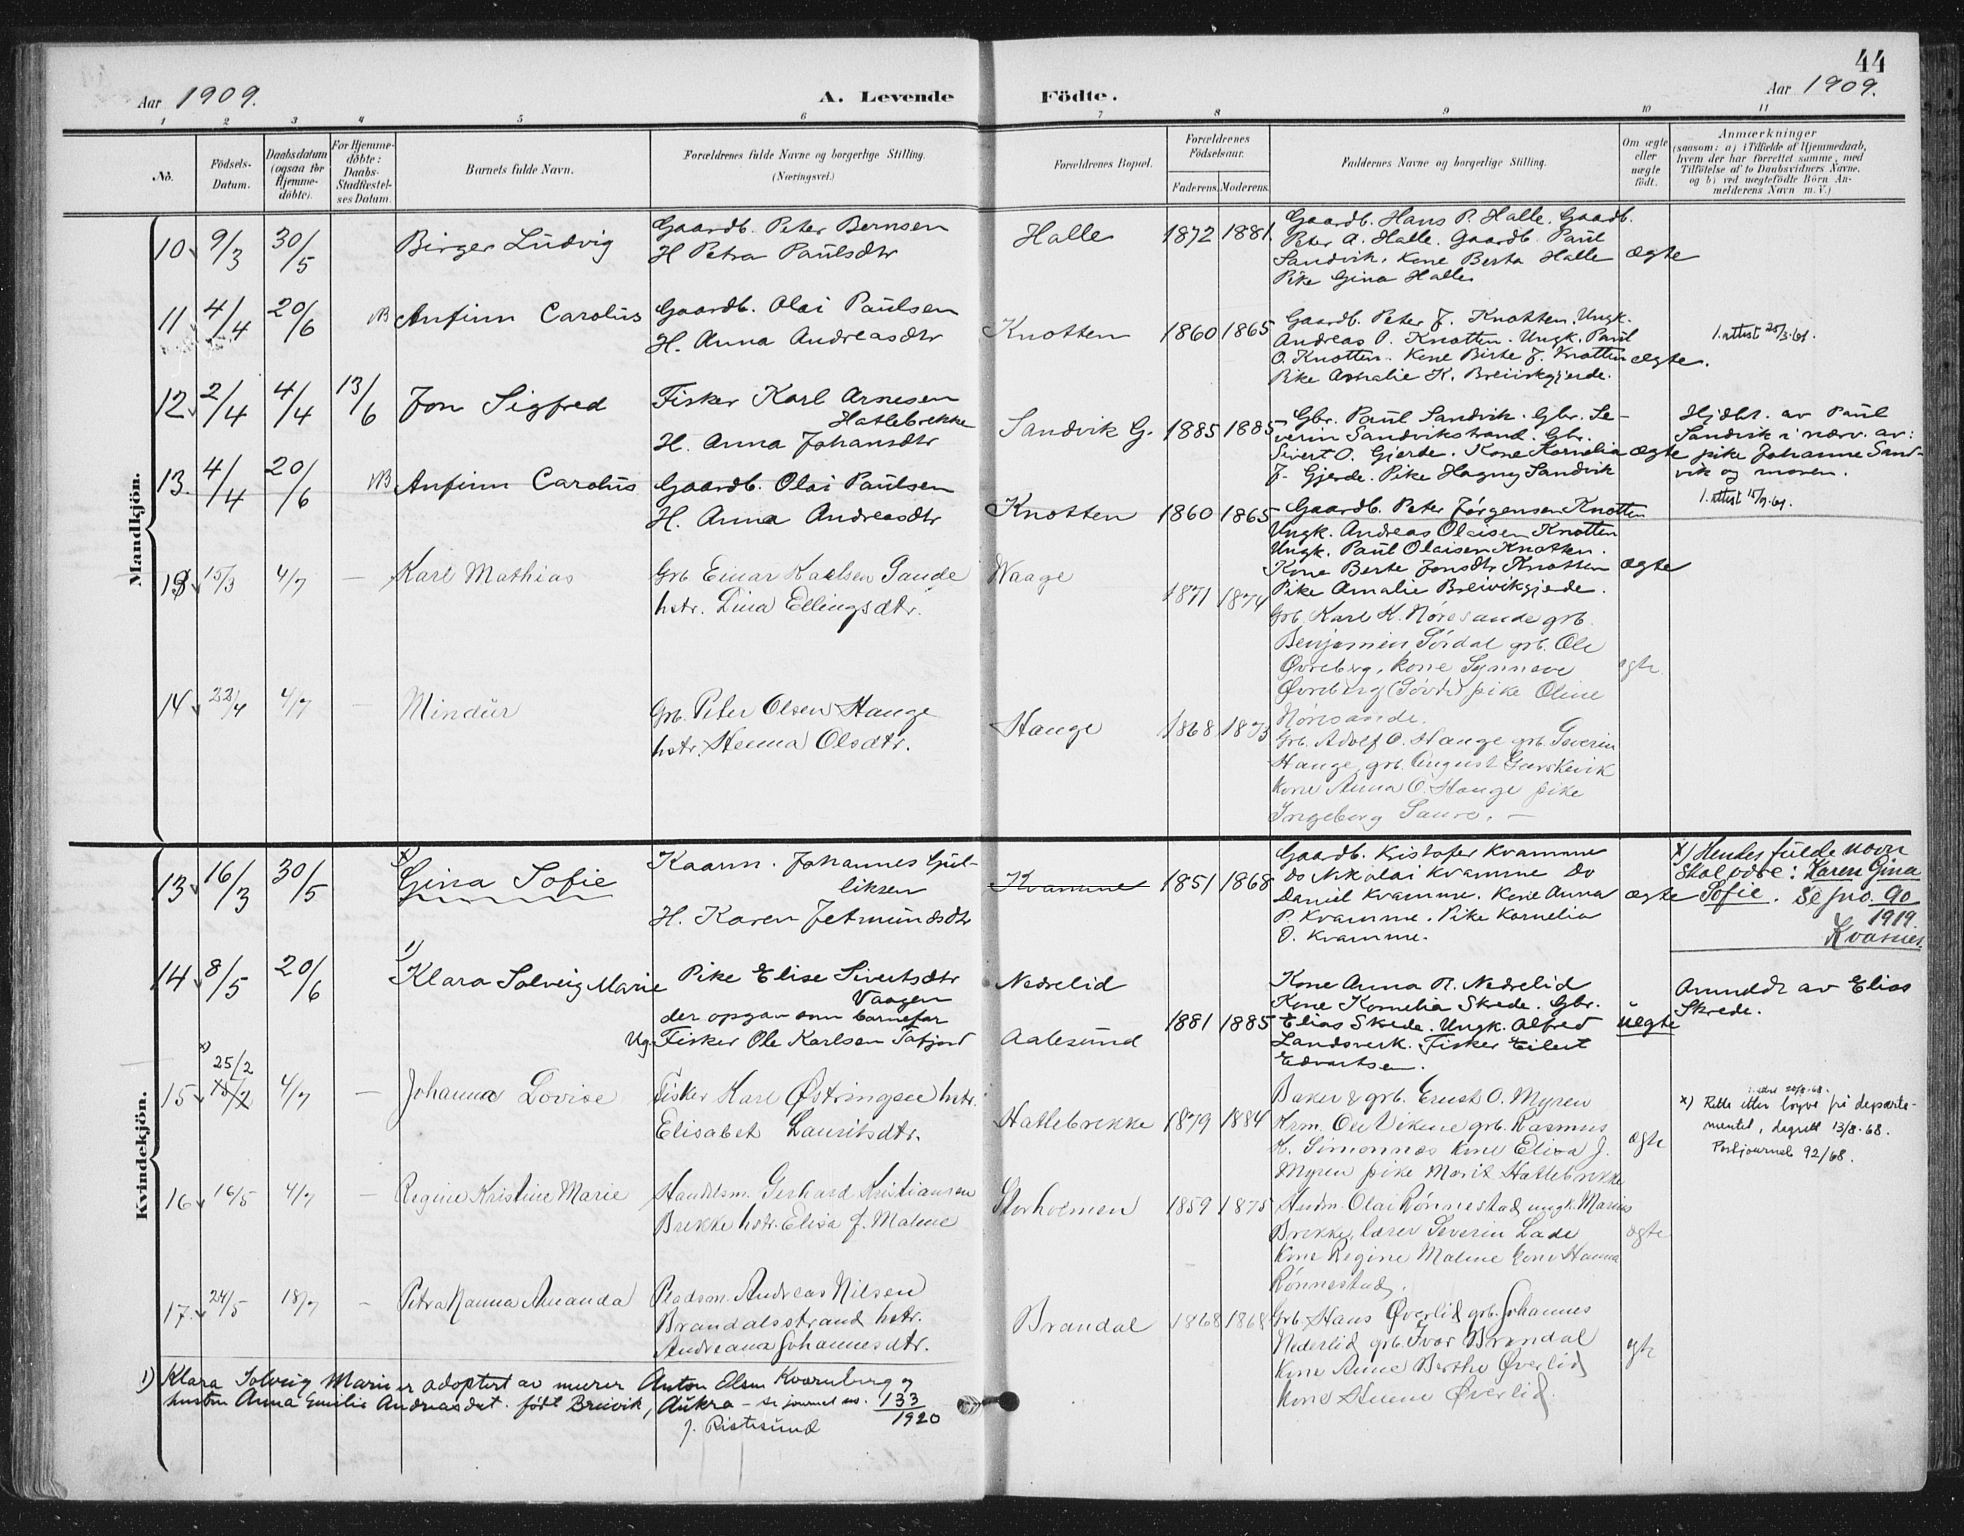 44
Aar 1909.
A. Levende Födte.
Aar 1909.
1 2 3 4 5 6 7 8 9 10 11
No.
Födsels-Datum.
Daabsdatum (ogsaa for Hjemme-döbte).
For Hjemme-döbte: Daabs-Stadfæstel-ses Datum.
Barnets fulde Navn.
Forældrenes fulde Navne og borgerlige Stilling.
(Næringsvei.)
Forældrenes Bopæl.
Forældrenes Födselsaar.
Faderens. Moderens.
Faddernes Navne og borgerlige Stilling.
Om ægte eller uægte födt.
Anmærkninger
(saasom: a) i Tilfælde af Hjemmedaab,
hvem der har forrettet samme, med
Tilföielse af to Daabsvidners Navne,
og b) ved uægtefödte Börn An-
melderens Navn m. V.)
Mandkjön.
10 9/3 30/5 Birger Ludvig
Gaardb. Peter Bernsen
H Petra Paulsdtr
Halle 1872 1881
Gaardb. Hans P. Halle. Gaardb.
Peter A. Halle. Gaardb. Paul
Sandvik. Kone Berta Halle
Pike Gina Halle
ægte
11 4/4 20/6 NB Anfinn Carolus
Gaardb. Olai Paulsen
H. Anna Andreasdtr
Knotten 1860 1865
Gaardb. Peter J. Knotten. Ungk.
Andreas O. Knotten. Ungk. Paul
O. Knotten. Kone Birte J. Knotten
Pike Amalie K. Breivikgjerde.
ægte.
1. attest 25/3-61.
12 2/4 4/4 13/6 Jon Sigfred
Fisker Karl Arnesen
Hatlebrekke
H. Anna Johansdtr
Sandvik G. 1885 1885
Gbr. Paul Sandvik. Gbr. Se-
verin Sandvikstrand. Gbr.
Sivert O. Gjerde. Kone Kornelia
J. Gjerde. Pike Hagny Sandvik
ægte
Hjdbt. av Paul
Sandvik i nærv. av:
pike Johanne Sand-
vik og moren.
13. 4/4 20/6 NB Anfinn Carolus
Gaardb. Olai Paulsen
H. Anna Andreasdtr
Knotten 1860 1865
Gaardb. Peter Jørgensen Knotten
Ungk. Andreas Olaisen Knotten
Ungk. Paul Olaisen Knotten.
Kone Berte Jonsdtr Knotten
Pike Amalie Breivikgjerde.
ægte
1. attest 15/9-61.
13 15/3 4/7 — Karl Mathias
Grb Einar Karlsen Sande
hstr. Lina Ellingsdtr.
Waage 1871 1874
Grb. Karl K. Nøresande grb.
Benjamin Sørdal grb. Ole
Øvreberg. kone Synneve
Øvreberg (Gøvde) pike Oline
Nøresande.
ægte
14 22/4 4/7 — Mindür
Grb. Peter Olsen Hauge
hstr. Hanna Olsdtr.
Hauge 1868 1873
Grb. Adolf O. Hauge grb. Severin
Hauge, grb. August Gurskevik
kone Anna O. Hauge pike
Ingeborg Saure. —
Kvindekjön.
13 16/3 30/5 x) Gina Sofie
Kaarm. Johannes Gul-
liksen
H. Karen Jetmundsdtr
Kvamme 1851 1868
Gaardb. Kristofer Kvamme
Do Nikolai Kvamme Do
Daniel Kvamme. Kone Anna
P. Kvamme. Pike Kornelia
O. Kvamme.
ægte
x) Hendes fulde navn
skal være: Karen Gina
Sofie. Se jno. 90
1919.
Kvasnes.
14 8/5 20/6 1) Klara Solveig Marie
Pike Elise Sivertsdtr
Vaagen
der opgav som barnefar
Ug. Fisker Ole Karlsen Tafjord
Nedrelid
Aalesund 1881 1885
Kone Anna R. Nedrelid
Kone Kornelia Skrede. Gbr.
Elias Skrede. Ungk. Alfred
Landsverk. Fisker Eilert
Edvartsen.
uegte
Anmeldt av Elias
Skrede.
15 x) 25/2 15/2 4/7 — Johanna Lovise
Fisker Karl Østringen hstr.
Elisabet Lauritsdtr.
Hatlebrekke 1879 1884
Baker & grb. Ernst O. Myren
Krm. Ole Vikene grb. Rasmus
K. Simonnæs kone Elisa J.
Myren pike Marit Hatlebrekke
ægte
x) Rettet etter løyve frå departe-
mentet, dagsett 13/8-68.
Postjournal 92/68.
16 16/5 4/7 — Regine Kristine Marie
Handelsm. Gerhard Kristiansen
Brekke hstr. Elisa J. Malene
Storholmen 1859 1875
Handm. Olai Rønnestad ungk. Marius
Brekke, lærer Severin Lade
Kone Regine Malene kone Hanna
Rønnestad.
ægte
17. 24/5 18/7 — Petra Nanna Amanda
Pladsm. Andreas Nilsen
Brandalsstrand hstr.
Andreana Johannesdtr.
Brandal 1868 1868
Grb. Hans Øverlid grb. Johannes
Nederlid grb. Ivar Brandal
Kone Anne Berthe Øverlid
Kone Helene Øverlid.
ægte
1) Klara Solveig Marie er adoptert av murer Anton Olsen Kvernberg og
hustru Anna Emilie Andreasdat. født Breivik, Aukra — se journal no. 133
1920
J. Ristesund